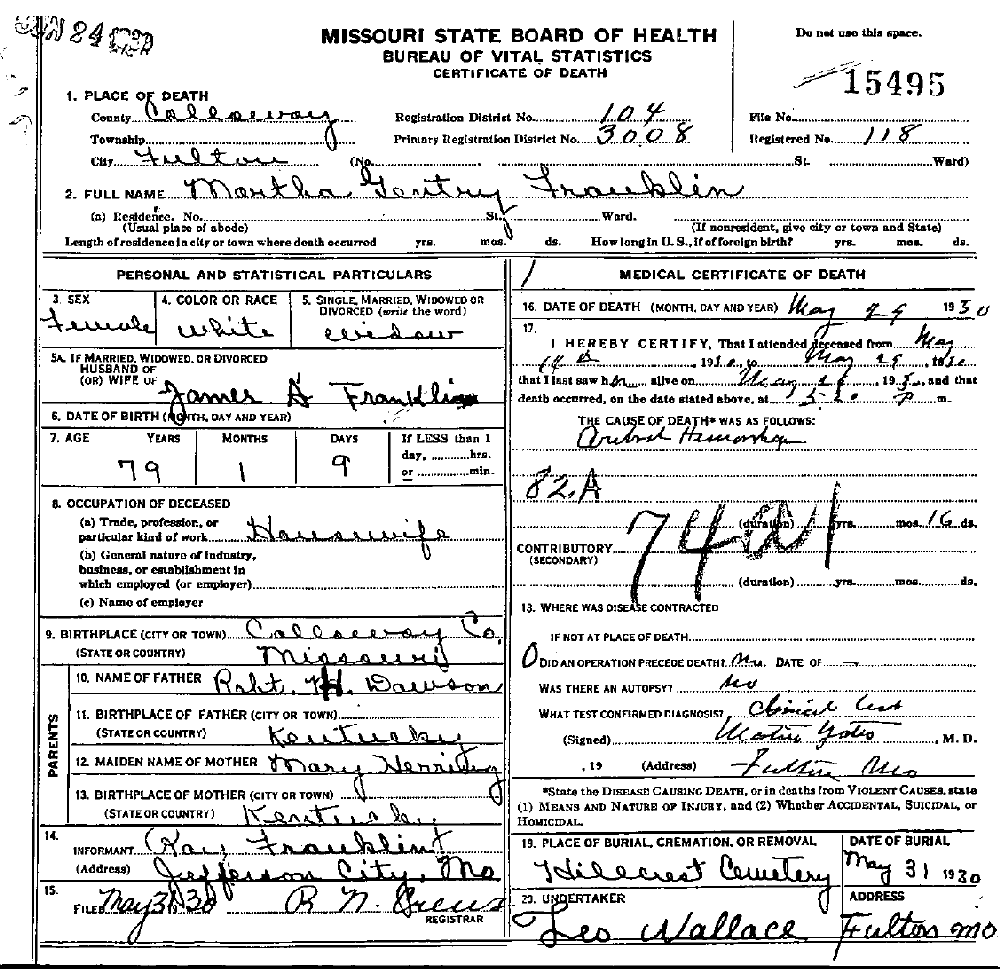 JUN 24 1930
MISSOURI STATE BOARD OF HEALTH
BUREAU OF VITAL STATISTICS
CERTIFICATE OF DEATH
Do not use this space.
15495
1. PLACE OF DEATH
County Callaway Registration District No. 104 File No.
Township Primary Registration District No. 3008 Registered No. 118
City Fulton (No. St. Ward)
2. FULL NAME Martha Gentry Franklin
(a) Residence. No. St. Ward.
(Usual place of abode) (If nonresident, give city or town and State)
Length of residence in city or town where death occurred yrs. mos. ds. How long in U. S., if of foreign birth? yrs. mos. ds.
PERSONAL AND STATISTICAL PARTICULARS
3. SEX 4. COLOR OR RACE 5. SINGLE, MARRIED, WIDOWED OR DIVORCED (write the word)
Female White Widow
5A. IF MARRIED, WIDOWED, OR DIVORCED
HUSBAND OF
(OR) WIFE OF James H Franklin
6. DATE OF BIRTH (MONTH, DAY AND YEAR)
7. AGE YEARS MONTHS DAYS If LESS than 1 day, hrs. or min.
79 1 9
8. OCCUPATION OF DECEASED
(a) Trade, profession, or
particular kind of work Housewife
(b) General nature of industry,
business, or establishment in
which employed (or employer)
(c) Name of employer
9. BIRTHPLACE (CITY OR TOWN) Callaway Co.
(STATE OR COUNTRY) Missouri
PARENTS
10. NAME OF FATHER Robt. H. Dawson
11. BIRTHPLACE OF FATHER (CITY OR TOWN)
(STATE OR COUNTRY) Kentucky
12. MAIDEN NAME OF MOTHER Mary
13. BIRTHPLACE OF MOTHER (CITY OR TOWN)
(STATE OR COUNTRY) Kentucky
14.
INFORMANT Ray Franklin
(Address) Jefferson City, Mo
15.
FILED May 31, 30 R. N. Crews
REGISTRAR
MEDICAL CERTIFICATE OF DEATH
16. DATE OF DEATH (MONTH, DAY AND YEAR) May 29 1930
17.
I HEREBY CERTIFY, That I attended deceased from May
14, 1930, to May 29, 1930
that I last saw h alive on May 29, 1930, and that
death occurred, on the date stated above, at m.
THE CAUSE OF DEATH* WAS AS FOLLOWS:
Cerebral Hemorrhage
82.A
74
(duration) yrs. mos. 16 ds.
CONTRIBUTORY
(SECONDARY)
(duration) yrs. mos. ds.
18. WHERE WAS DISEASE CONTRACTED
IF NOT AT PLACE OF DEATH
DID AN OPERATION PRECEDE DEATH? No. DATE OF —
WAS THERE AN AUTOPSY? No
WHAT TEST CONFIRMED DIAGNOSIS? Clinical
(Signed) Yates, M. D.
, 19 (Address) Fulton Mo
*State the DISEASE CAUSING DEATH, or in deaths from VIOLENT CAUSES, state
(1) MEANS AND NATURE OF INJURY, and (2) Whether ACCIDENTAL, SUICIDAL, or
HOMICIDAL.
19. PLACE OF BURIAL, CREMATION, OR REMOVAL DATE OF BURIAL
Hillcrest Cemetery May 31 1930
20. UNDERTAKER ADDRESS
Leo Wallace Fulton Mo